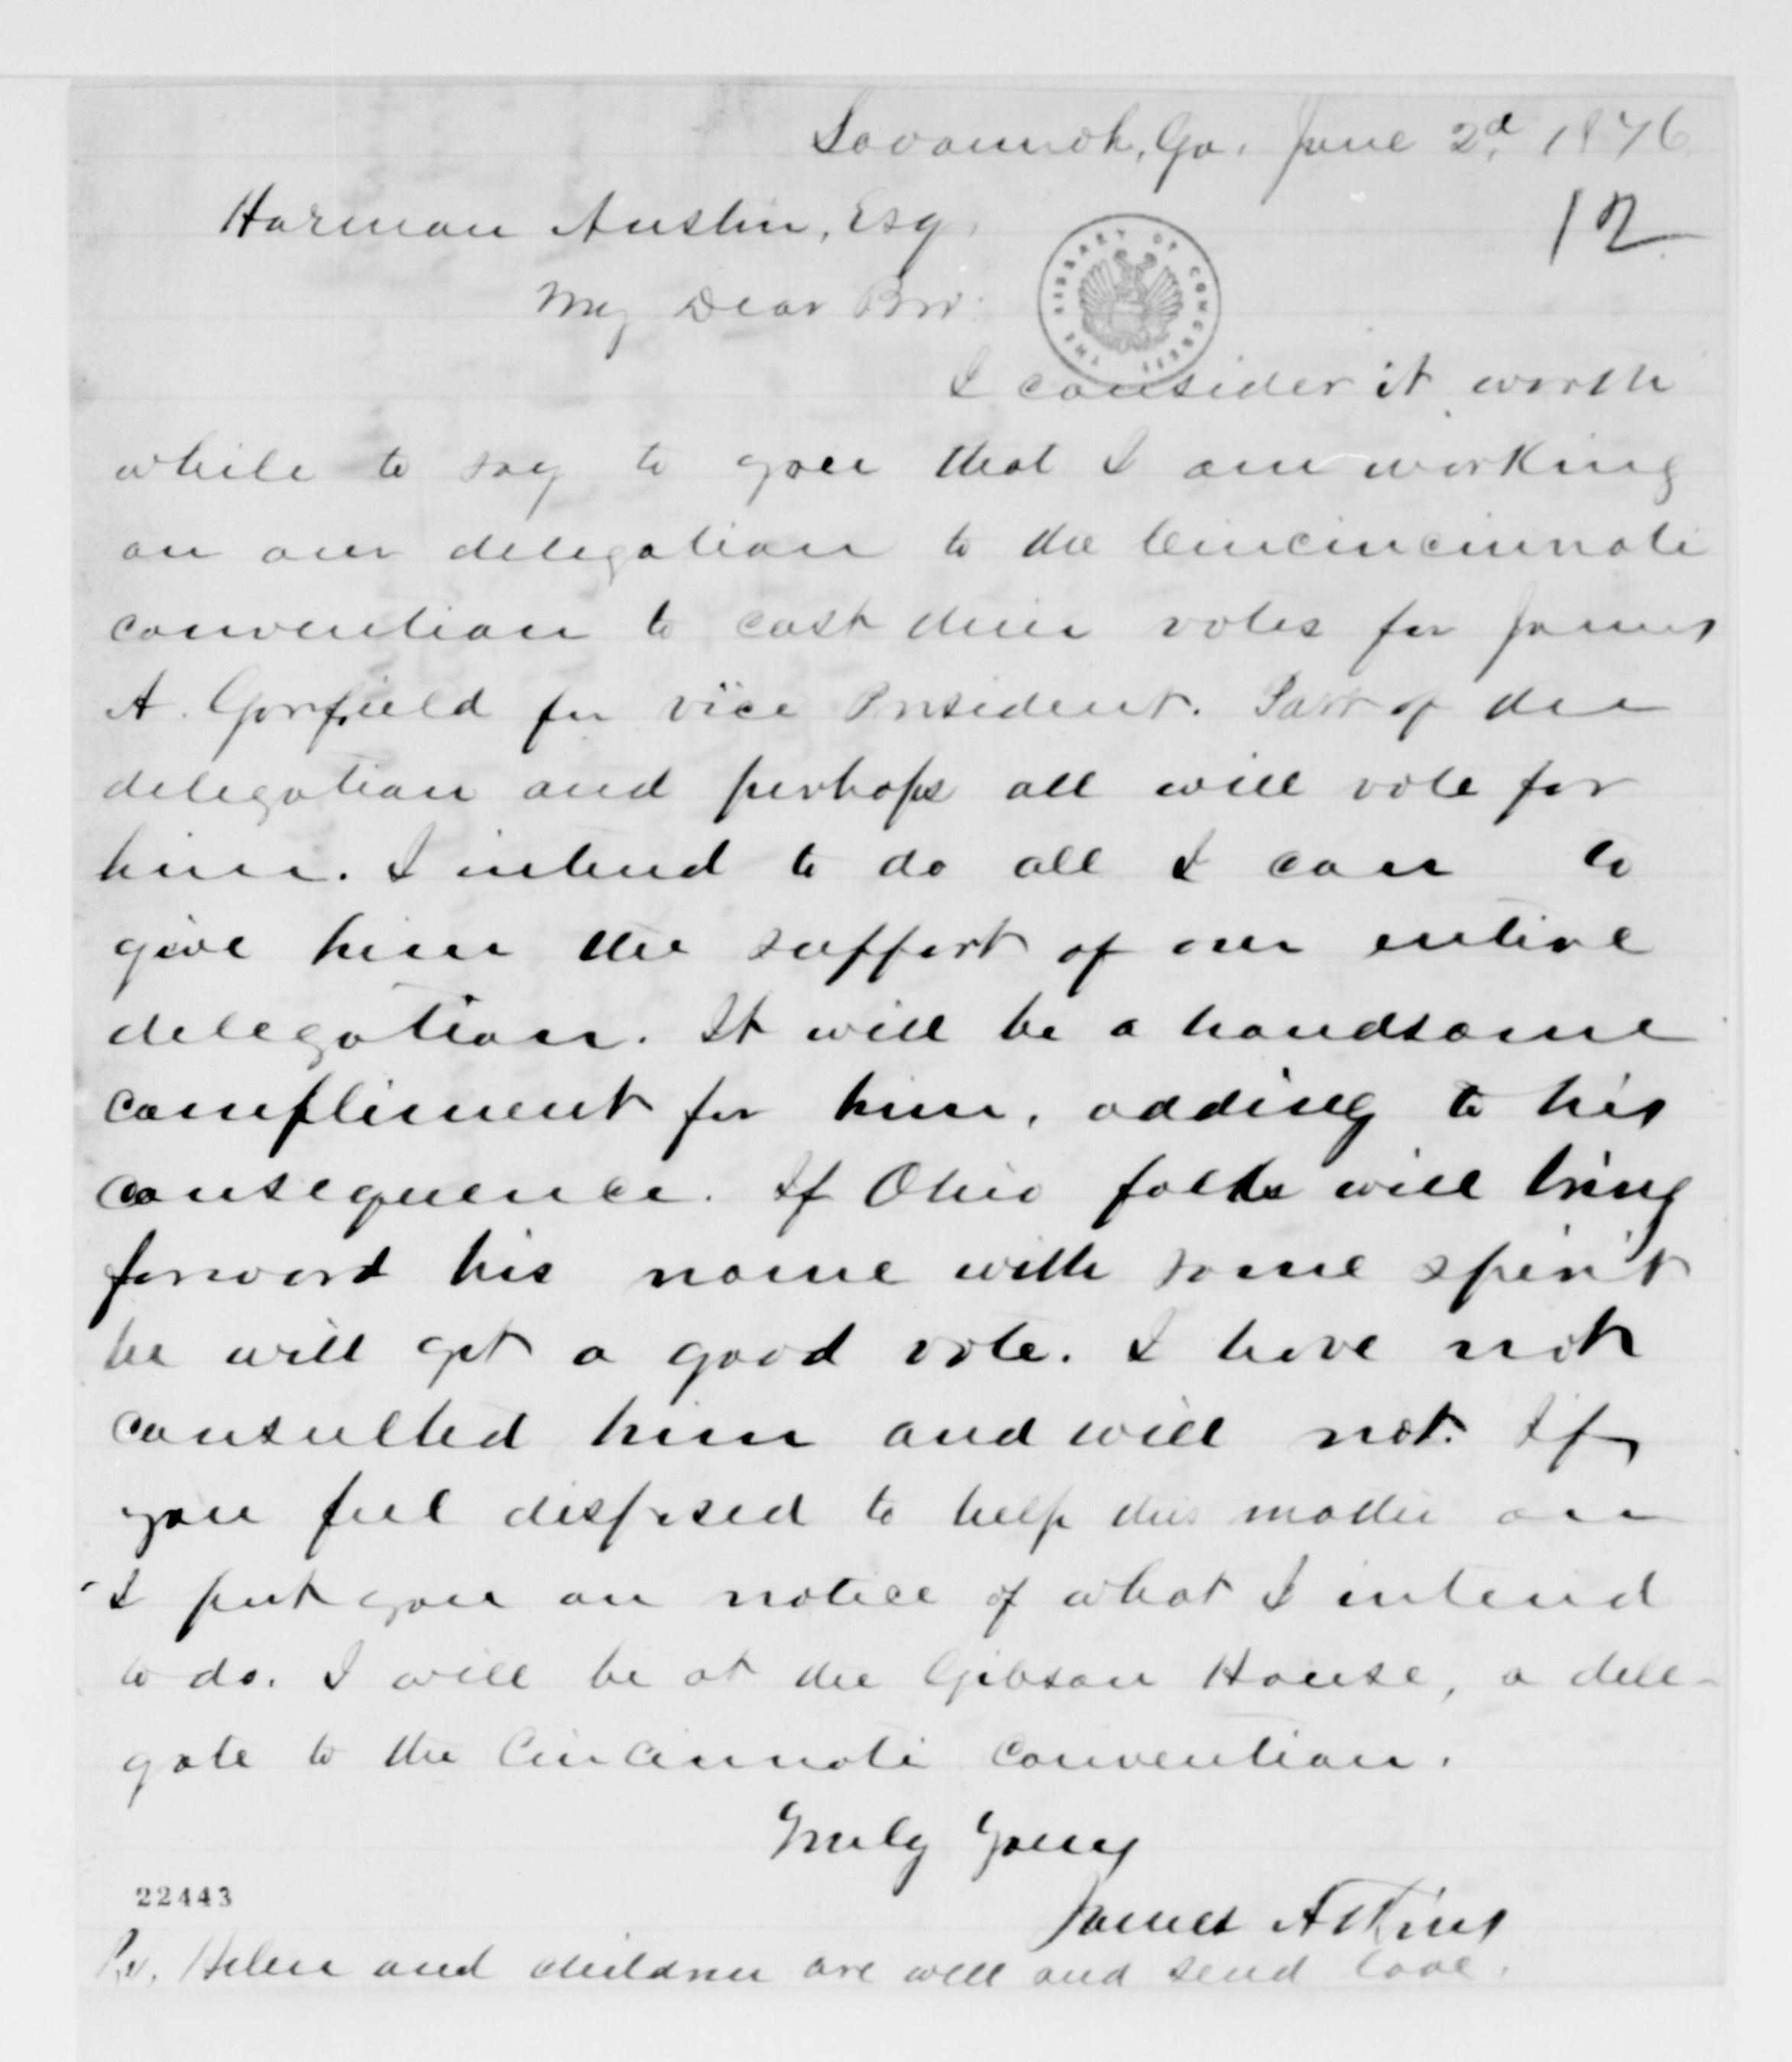 Savannah, Ga. June 2d. 1876
12
Harmon Austin, Esq.
My Dear Bro:
THE LIBRARY OF CONGRESS
I consider it worth
while to say to you that I am working
on our delegation to the Cincincinnati
convention to cast their votes for James
A. Garfield for vice President. Part of the
delegation and perhaps all will vote for
him. I intend to do all I can to
give him the support of our entire
delegation. It will be a handsome
compliment for him, adding to his
consequence. If Ohio folks will bring
forward his name with some spirit
he will get a good vote. I have not
consulted him and will not. If
you feel disposed to help this matter on
I put you on notice of what I intend
to do. I will be at the Gibson House, a dele-
gate to the Cincinnati Convention.
Truly Yours
James Atkins
22443
P.S. Helen and children are well and send love.